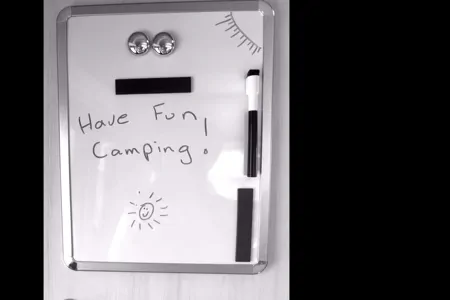 Have Fun,
Camping!